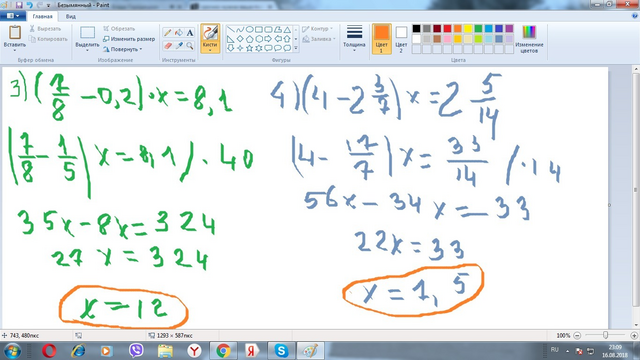 Безымянный - Paint
Главная
Вид
Вставить
Вырезать
Копировать
Буфер обмена
Выделить
Обрезать
Изменить размер
Повернуть
Изображение
Кисти
Инструменты
Контур
Заливка
Фигуры
Толщина
Цвет 1
Цвет 2
Изменение цветов
Цвета
3) (7/8 - 0,2) · x = 8,1
(7/8 - 1/5) x = 8,1 / · 40
35x - 8x = 324
27x = 324
x = 12
4) (4 - 2 3/7) x = 2 5/14
(4 - 17/7) x = 33/14 / · 14
56x - 34x = 33
22x = 33
x = 1,5
743, 480пкс
1293 × 587пкс
100%
RU
23:09
16.08.2018